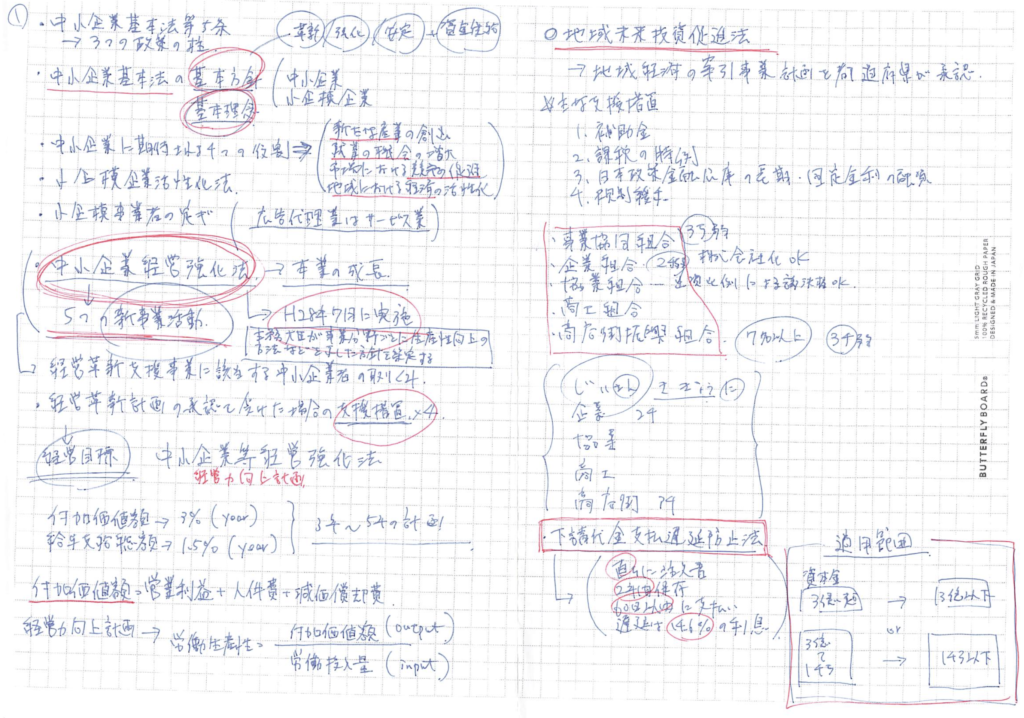 ①
・中小企業基本法第5条
→3つの政策の柱
革新 強化 安定
・中小企業基本法の基本方針
基本理念
中小企業
小企模企業
・中小企業に期待される4つの役割⇒
新たな産業の創出
就業の機会の増大
市場における競争の促進
地域における経済の活性化
・小企模企業活性化法.
・小企模事業者の定義
(広告代理業はサービス業)
・中小企業経営強化法.→本業の成長.
5つの新事業活動.
→H28年7月に実施
主務大臣が事業分野ごとに生産性向上の
方法などを示した方針を策定する
経営革新支援事業に該当する中小企業者の取り組み.
・経営革新計画の承認を受けた場合の支援措置.×4.
経営目標
中小企業等経営強化法
経営力向上計画
付加価値額→3%(year)
給与支給総額→1.5%(year)
3年〜5年の計画
付加価値額=営業利益+人件費+減価償却費.
経営力向上計画→労働生産性=
付加価値額(output)
労働投入量(input)
○地域未来投資促進法
→地域経済の牽引事業計画を都道府県が承認.
主な支援措置
1.補助金
2.課税の特例
3.日本政策金融公庫の長期・固定金利の融資
4.規制緩和
・事業協同組合
・企業組合
・協業組合
・商工組合
・商店街振興組合.
株式会社化OK
7割以上
企業 24
協業
商工
商店街 79
・下請代金支払遅延防止法
直ちに注文書
2年間保存
60日以内に支払い
遅延は14.6%の利息
適用範囲
資本金
3億超 → 3億以下
or
3億
〜
1千3 → 1千3以下
5mm LIGHT GRAY GRID
100% RECYCLED ROUGH PAPER
DESIGNED & MADE IN JAPAN
BUTTERFLYBOARD®